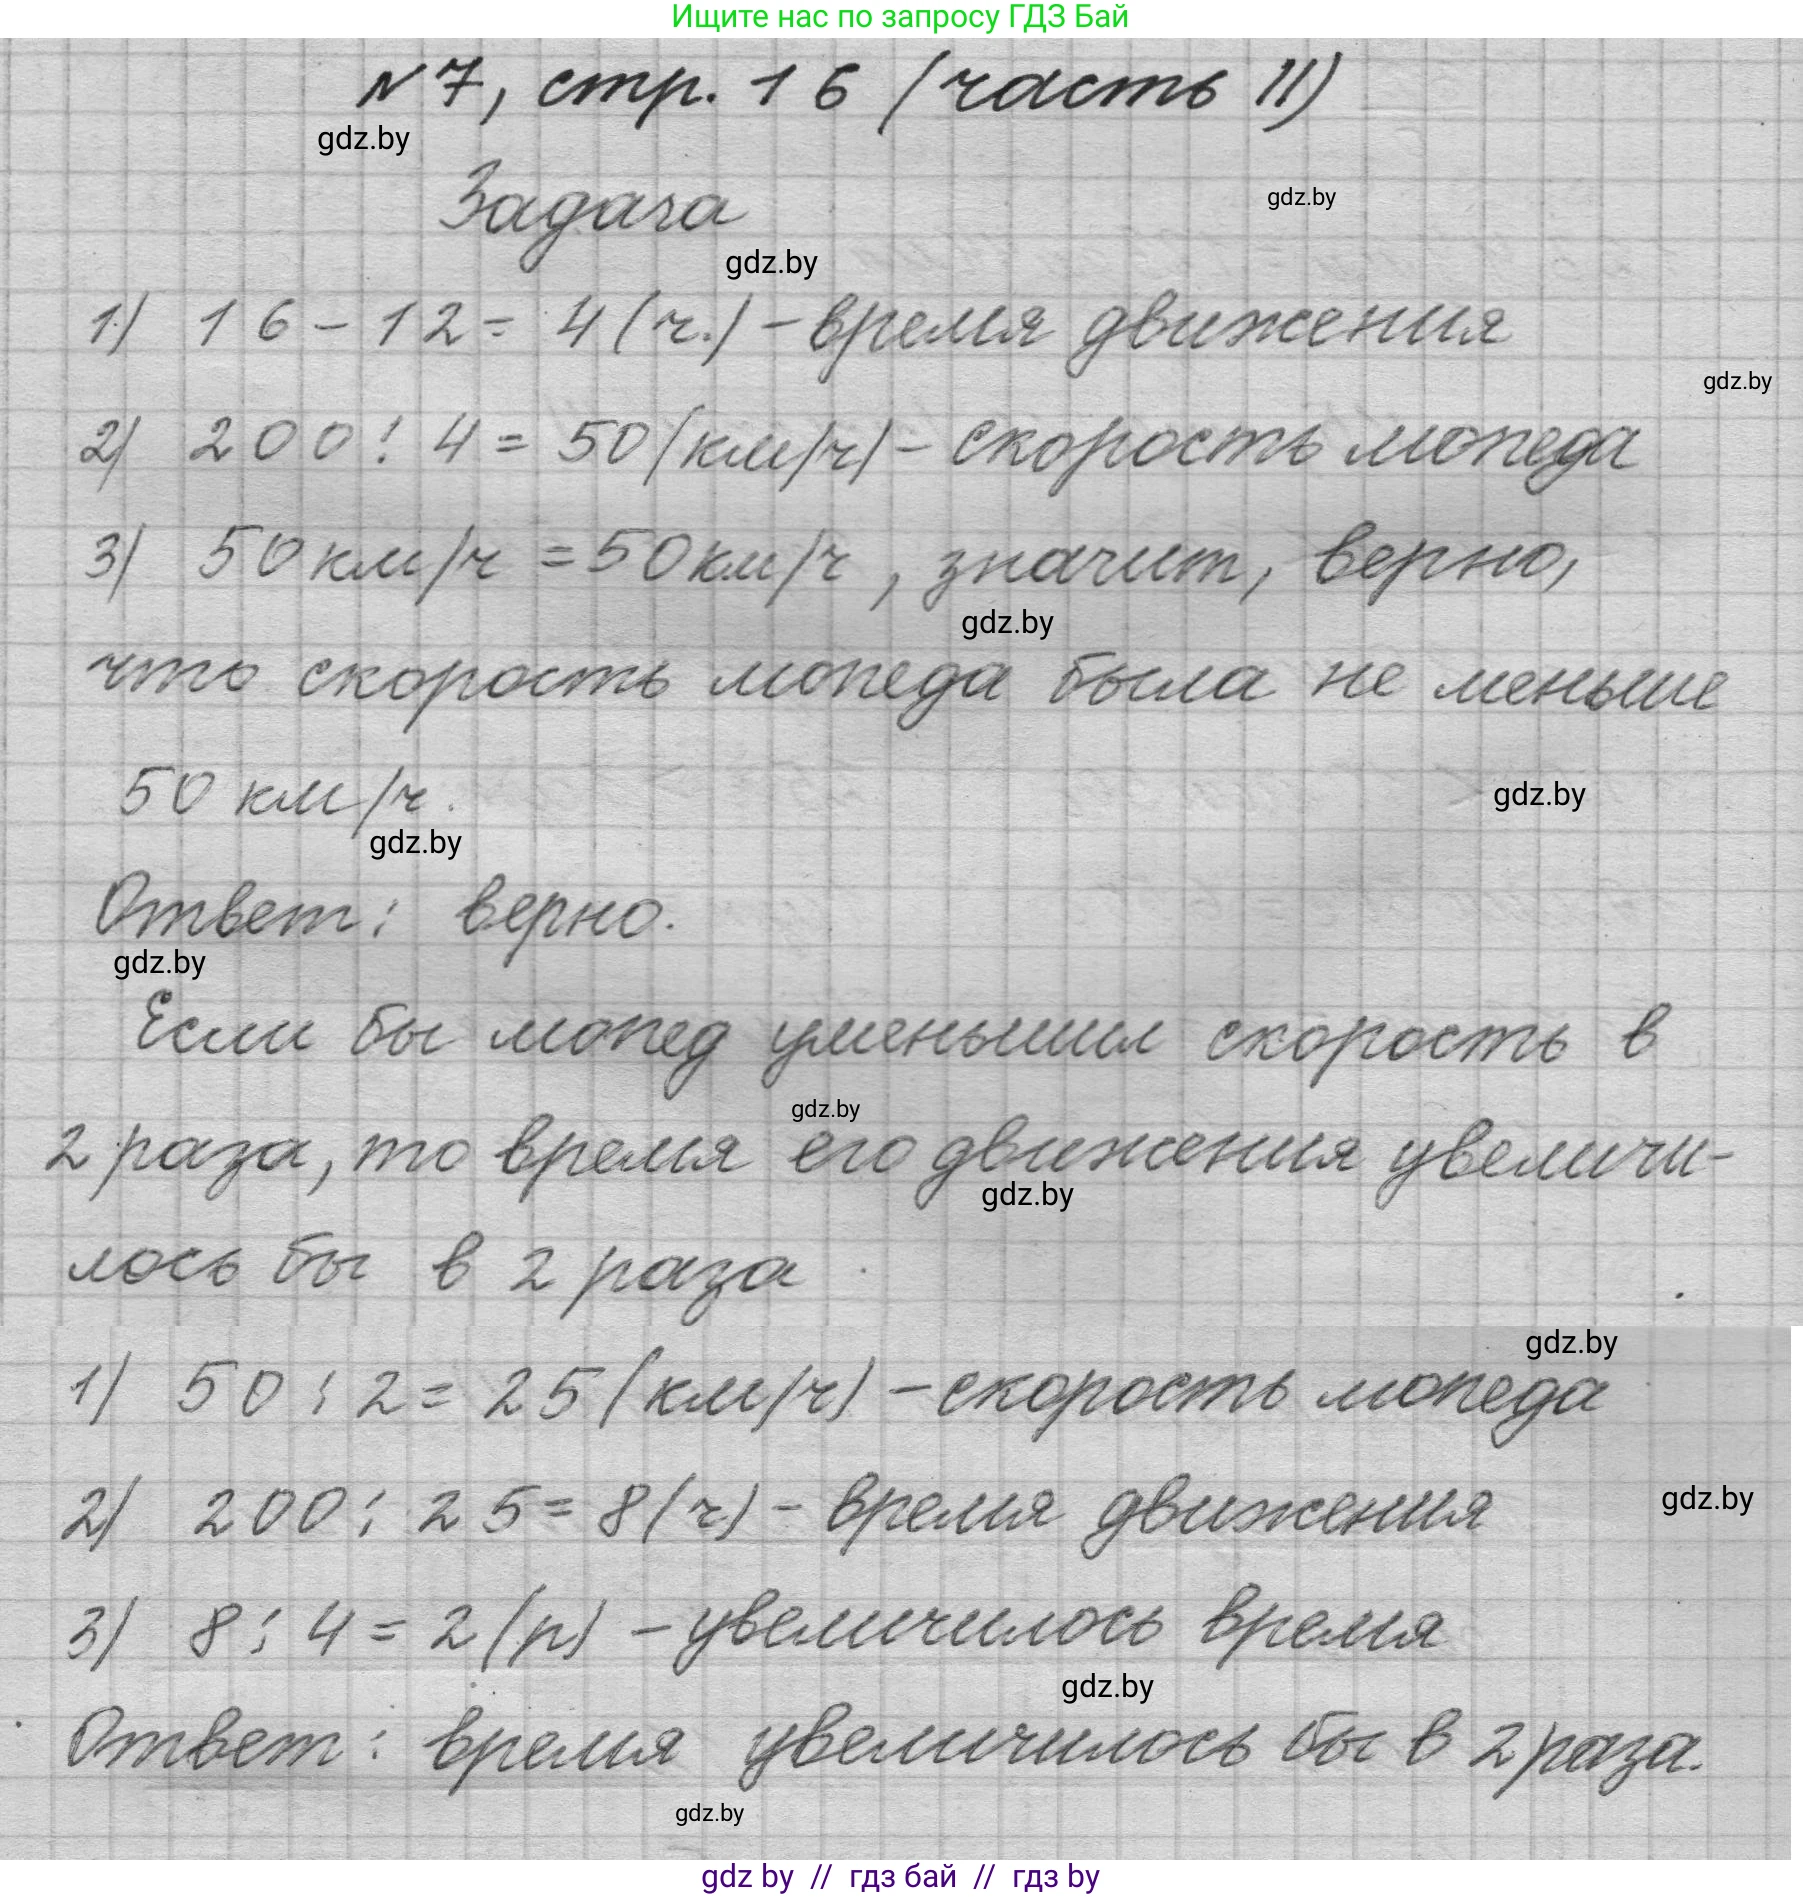 Ищите нас по запросу ГДЗ Бай
№7, стр. 16 (часть II)
gdz.by
Задача
gdz.by
gdz.by
1) 16 - 12 = 4 (ч.) - время движения
gdz.by
2) 200 : 4 = 50 (км/ч) - скорость мопеда
3) 50 км/ч = 50 км/ч, значит, верно,
gdz.by
что скорость мопеда была не меньше
50 км/ч.
gdz.by
gdz.by
Ответ: верно.
gdz.by
Если бы мопед уменьшил скорость в
gdz.by
2 раза, то время его движения увеличи-
gdz.by
лось бы в 2 раза
gdz.by
1) 50 : 2 = 25 (км/ч) - скорость мопеда
2) 200 : 25 = 8 (ч) - время движения
gdz.by
3) 8 : 4 = 2 (р) - увеличилось время
gdz.by
Ответ: время увеличилось бы в 2 раза.
gdz.by
gdz by // гдз бай // гдз by